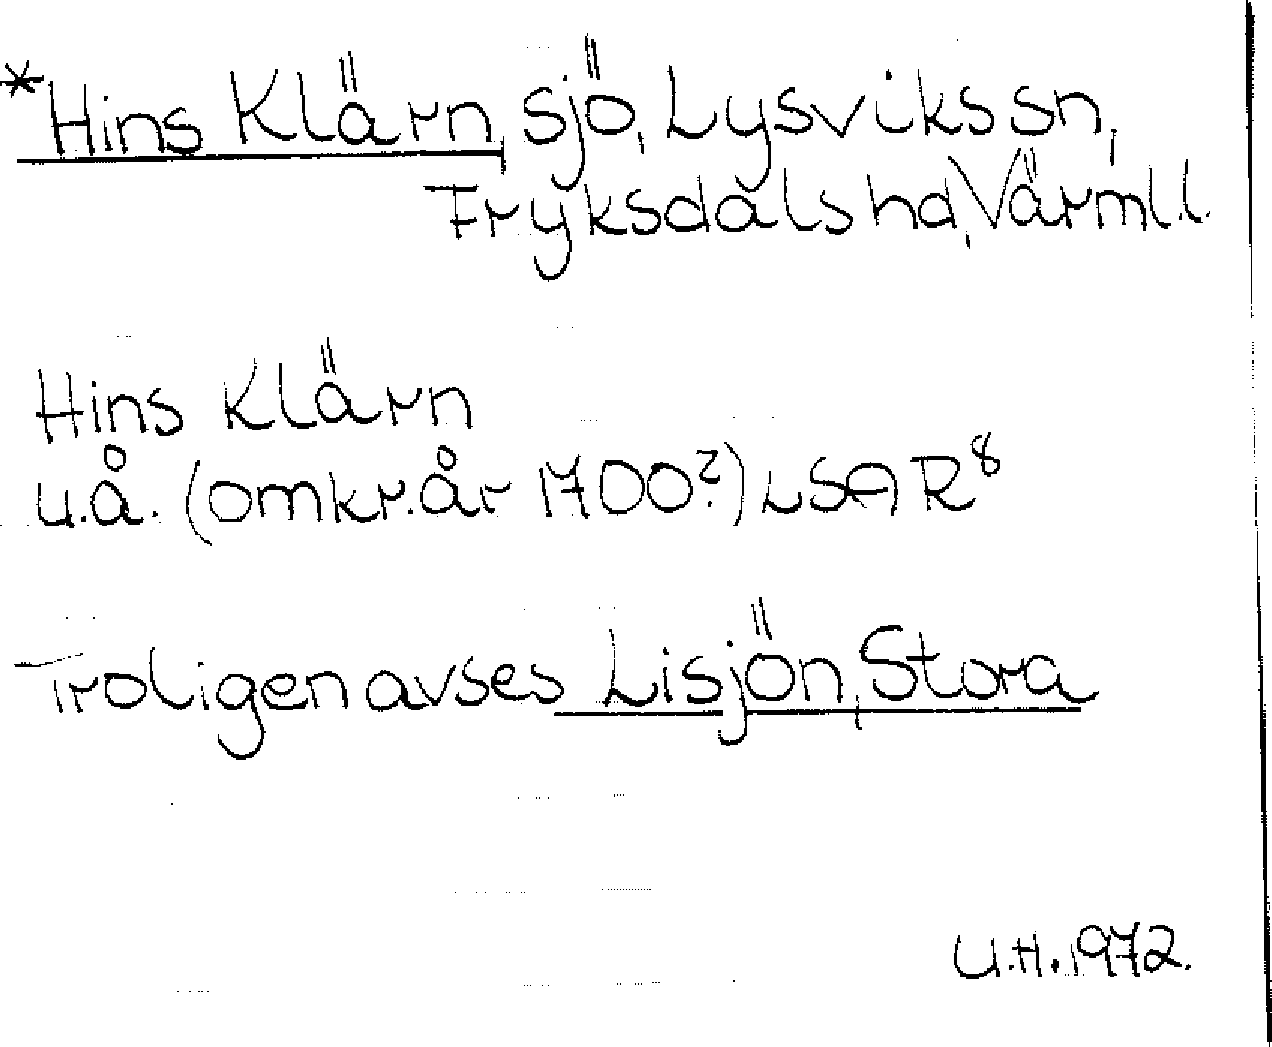 *Hins Klärn, sjö, Lysviks sn,
Fryksdals hd, Värml.l.
Hins Klärn
u.å. (omkr. år 1700?) LSA R8
Troligen avses Lisjön, Stora
U.H. 1972.